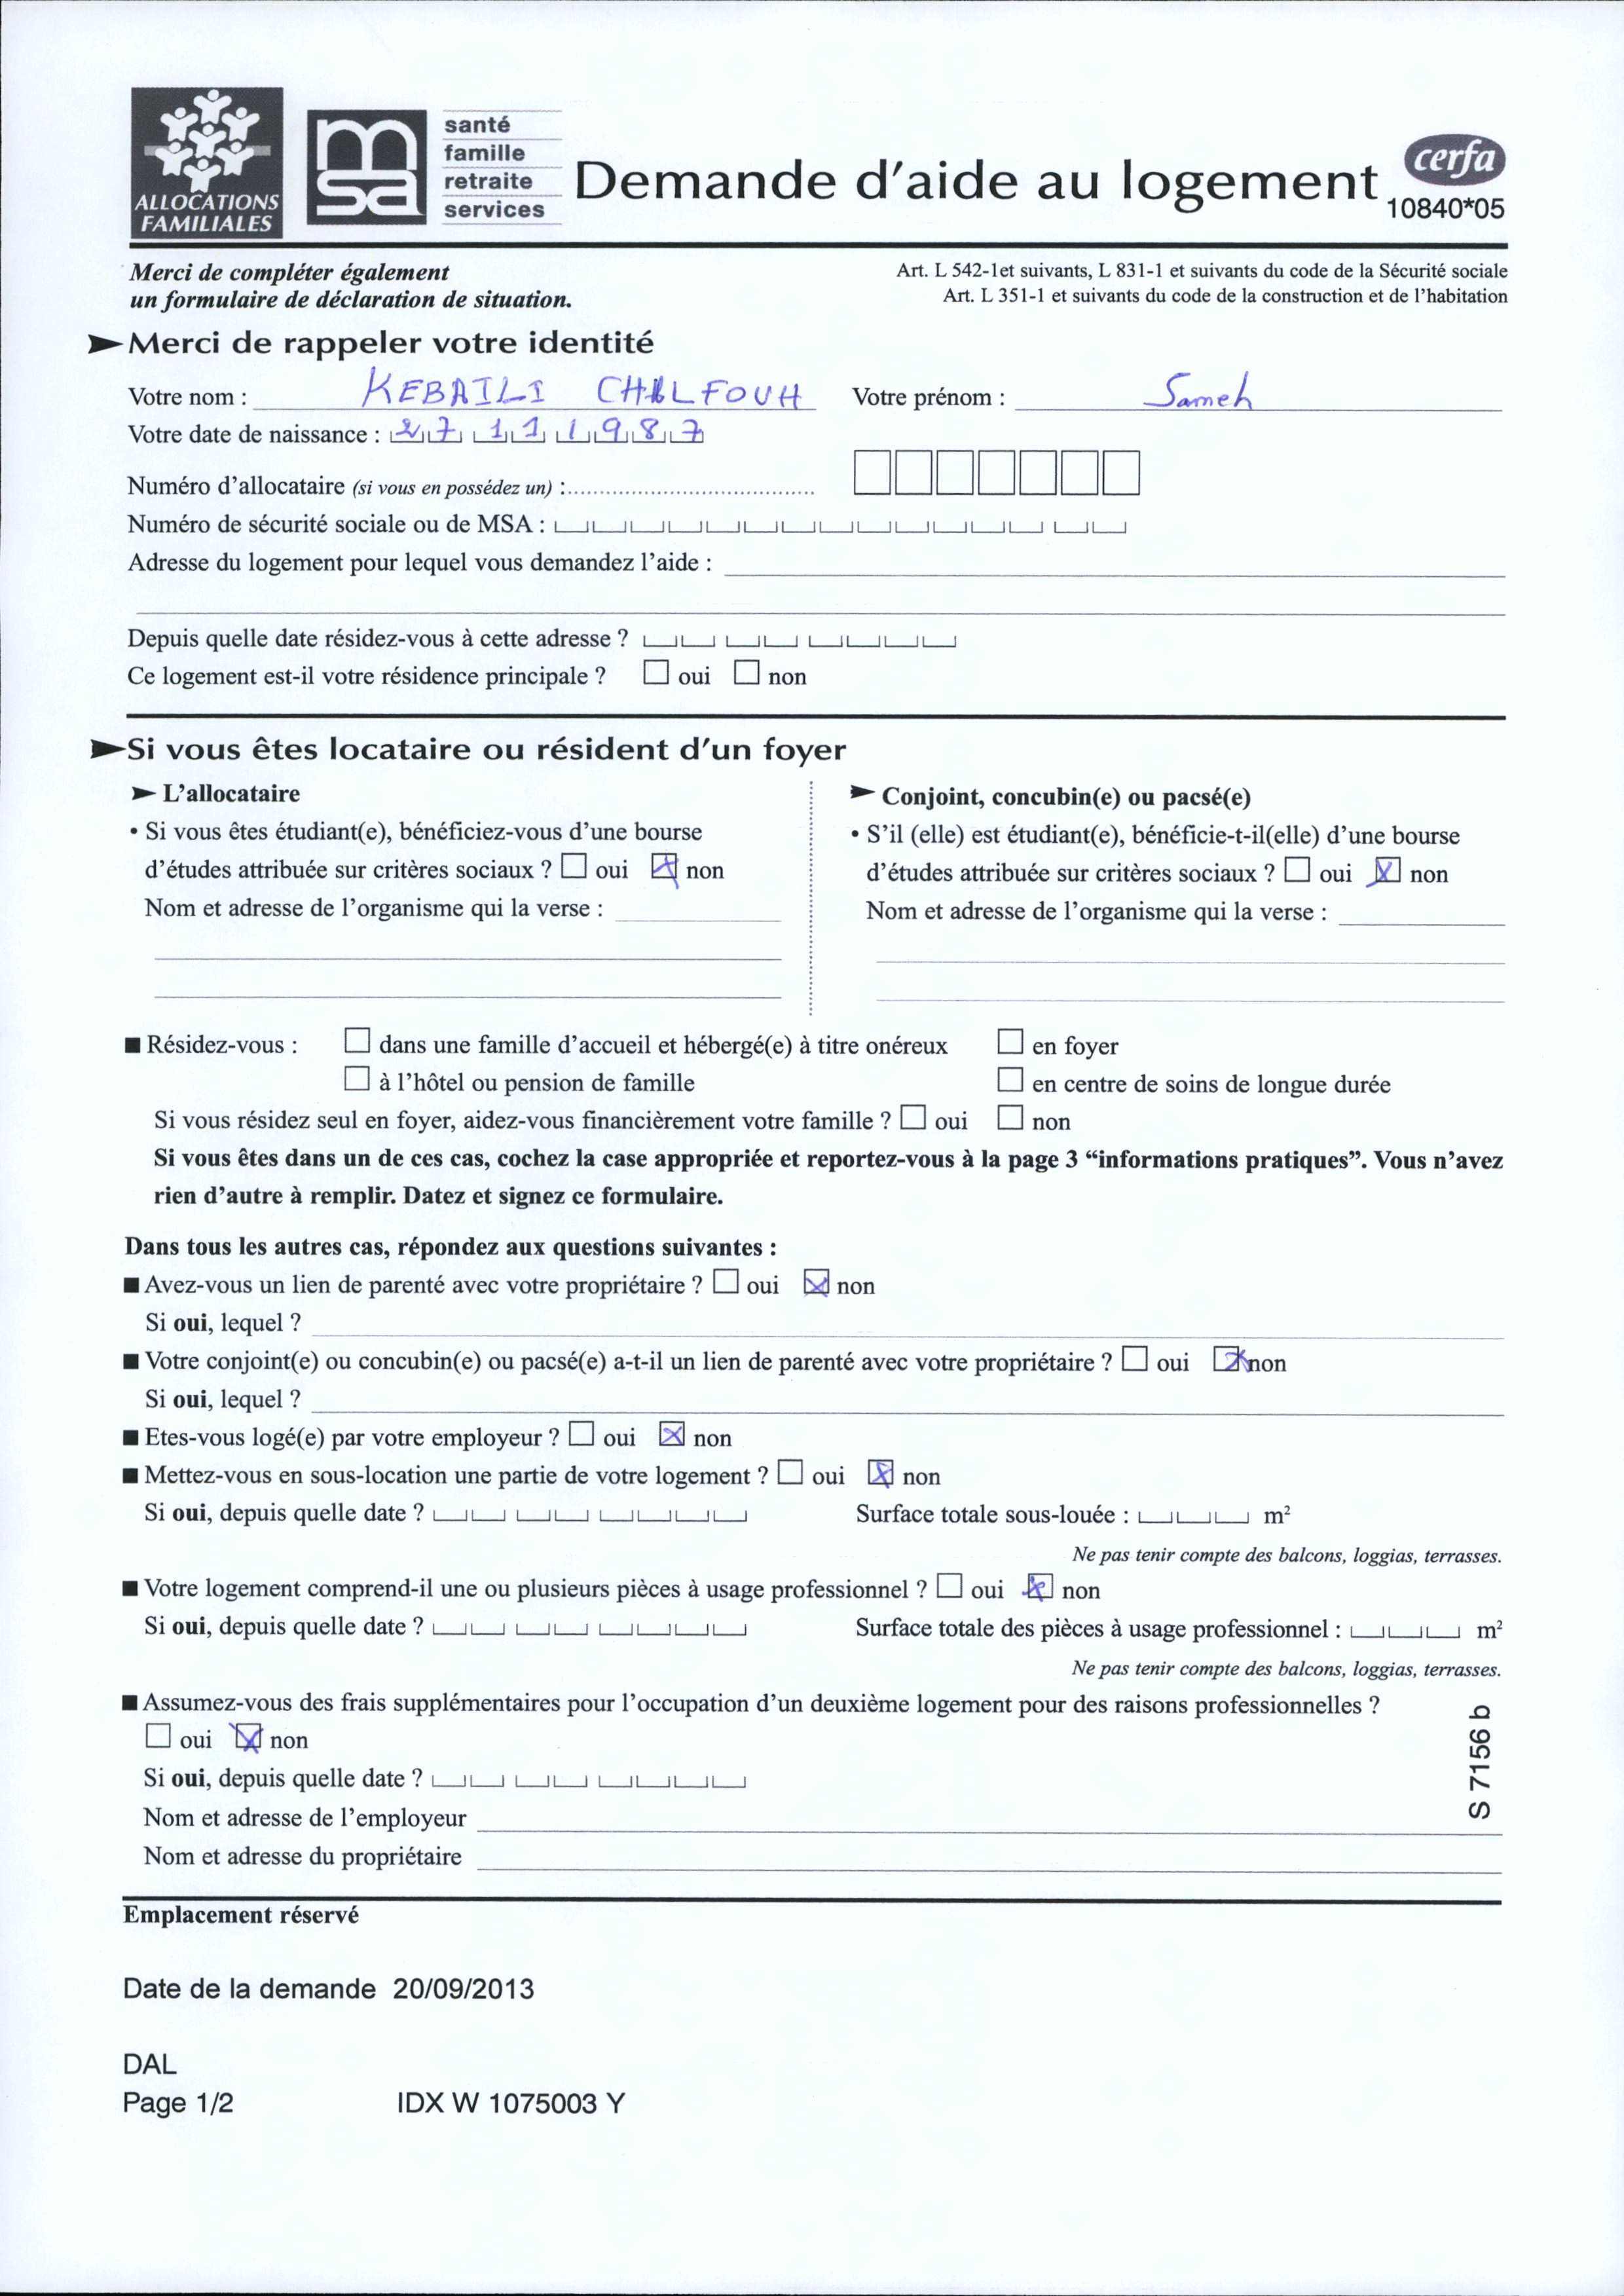 ALLOCATIONS
FAMILIALES
msa
santé
famille
retraite
services
Demande d'aide au logement
cerfa
10840*05
Merci de compléter également
un formulaire de déclaration de situation.
Art. L 542-1et suivants, L 831-1 et suivants du code de la Sécurité sociale
Art. L 351-1 et suivants du code de la construction et de l'habitation
Merci de rappeler votre identité
Votre nom : KEBAILI CHALFOUH Votre prénom : Sameh
Votre date de naissance : 27 11 1987
Numéro d'allocataire (si vous en possédez un) :
Numéro de sécurité sociale ou de MSA :
Adresse du logement pour lequel vous demandez l'aide :
Depuis quelle date résidez-vous à cette adresse ?
Ce logement est-il votre résidence principale ? oui non
Si vous êtes locataire ou résident d'un foyer
L'allocataire
• Si vous êtes étudiant(e), bénéficiez-vous d'une bourse
d'études attribuée sur critères sociaux ? oui non
Nom et adresse de l'organisme qui la verse :
Conjoint, concubin(e) ou pacsé(e)
• S'il (elle) est étudiant(e), bénéficie-t-il(elle) d'une bourse
d'études attribuée sur critères sociaux ? oui non
Nom et adresse de l'organisme qui la verse :
Résidez-vous : dans une famille d'accueil et hébergé(e) à titre onéreux en foyer
à l'hôtel ou pension de famille en centre de soins de longue durée
Si vous résidez seul en foyer, aidez-vous financièrement votre famille ? oui non
Si vous êtes dans un de ces cas, cochez la case appropriée et reportez-vous à la page 3 “informations pratiques”. Vous n'avez
rien d'autre à remplir. Datez et signez ce formulaire.
Dans tous les autres cas, répondez aux questions suivantes :
Avez-vous un lien de parenté avec votre propriétaire ? oui non
Si oui, lequel ?
Votre conjoint(e) ou concubin(e) ou pacsé(e) a-t-il un lien de parenté avec votre propriétaire ? oui non
Si oui, lequel ?
Etes-vous logé(e) par votre employeur ? oui non
Mettez-vous en sous-location une partie de votre logement ? oui non
Si oui, depuis quelle date ? Surface totale sous-louée : m²
Ne pas tenir compte des balcons, loggias, terrasses.
Votre logement comprend-il une ou plusieurs pièces à usage professionnel ? oui non
Si oui, depuis quelle date ? Surface totale des pièces à usage professionnel : m²
Ne pas tenir compte des balcons, loggias, terrasses.
Assumez-vous des frais supplémentaires pour l'occupation d'un deuxième logement pour des raisons professionnelles ?
oui non
Si oui, depuis quelle date ?
Nom et adresse de l'employeur
Nom et adresse du propriétaire
S 7156 b
Emplacement réservé
Date de la demande 20/09/2013
DAL
Page 1/2 IDX W 1075003 Y